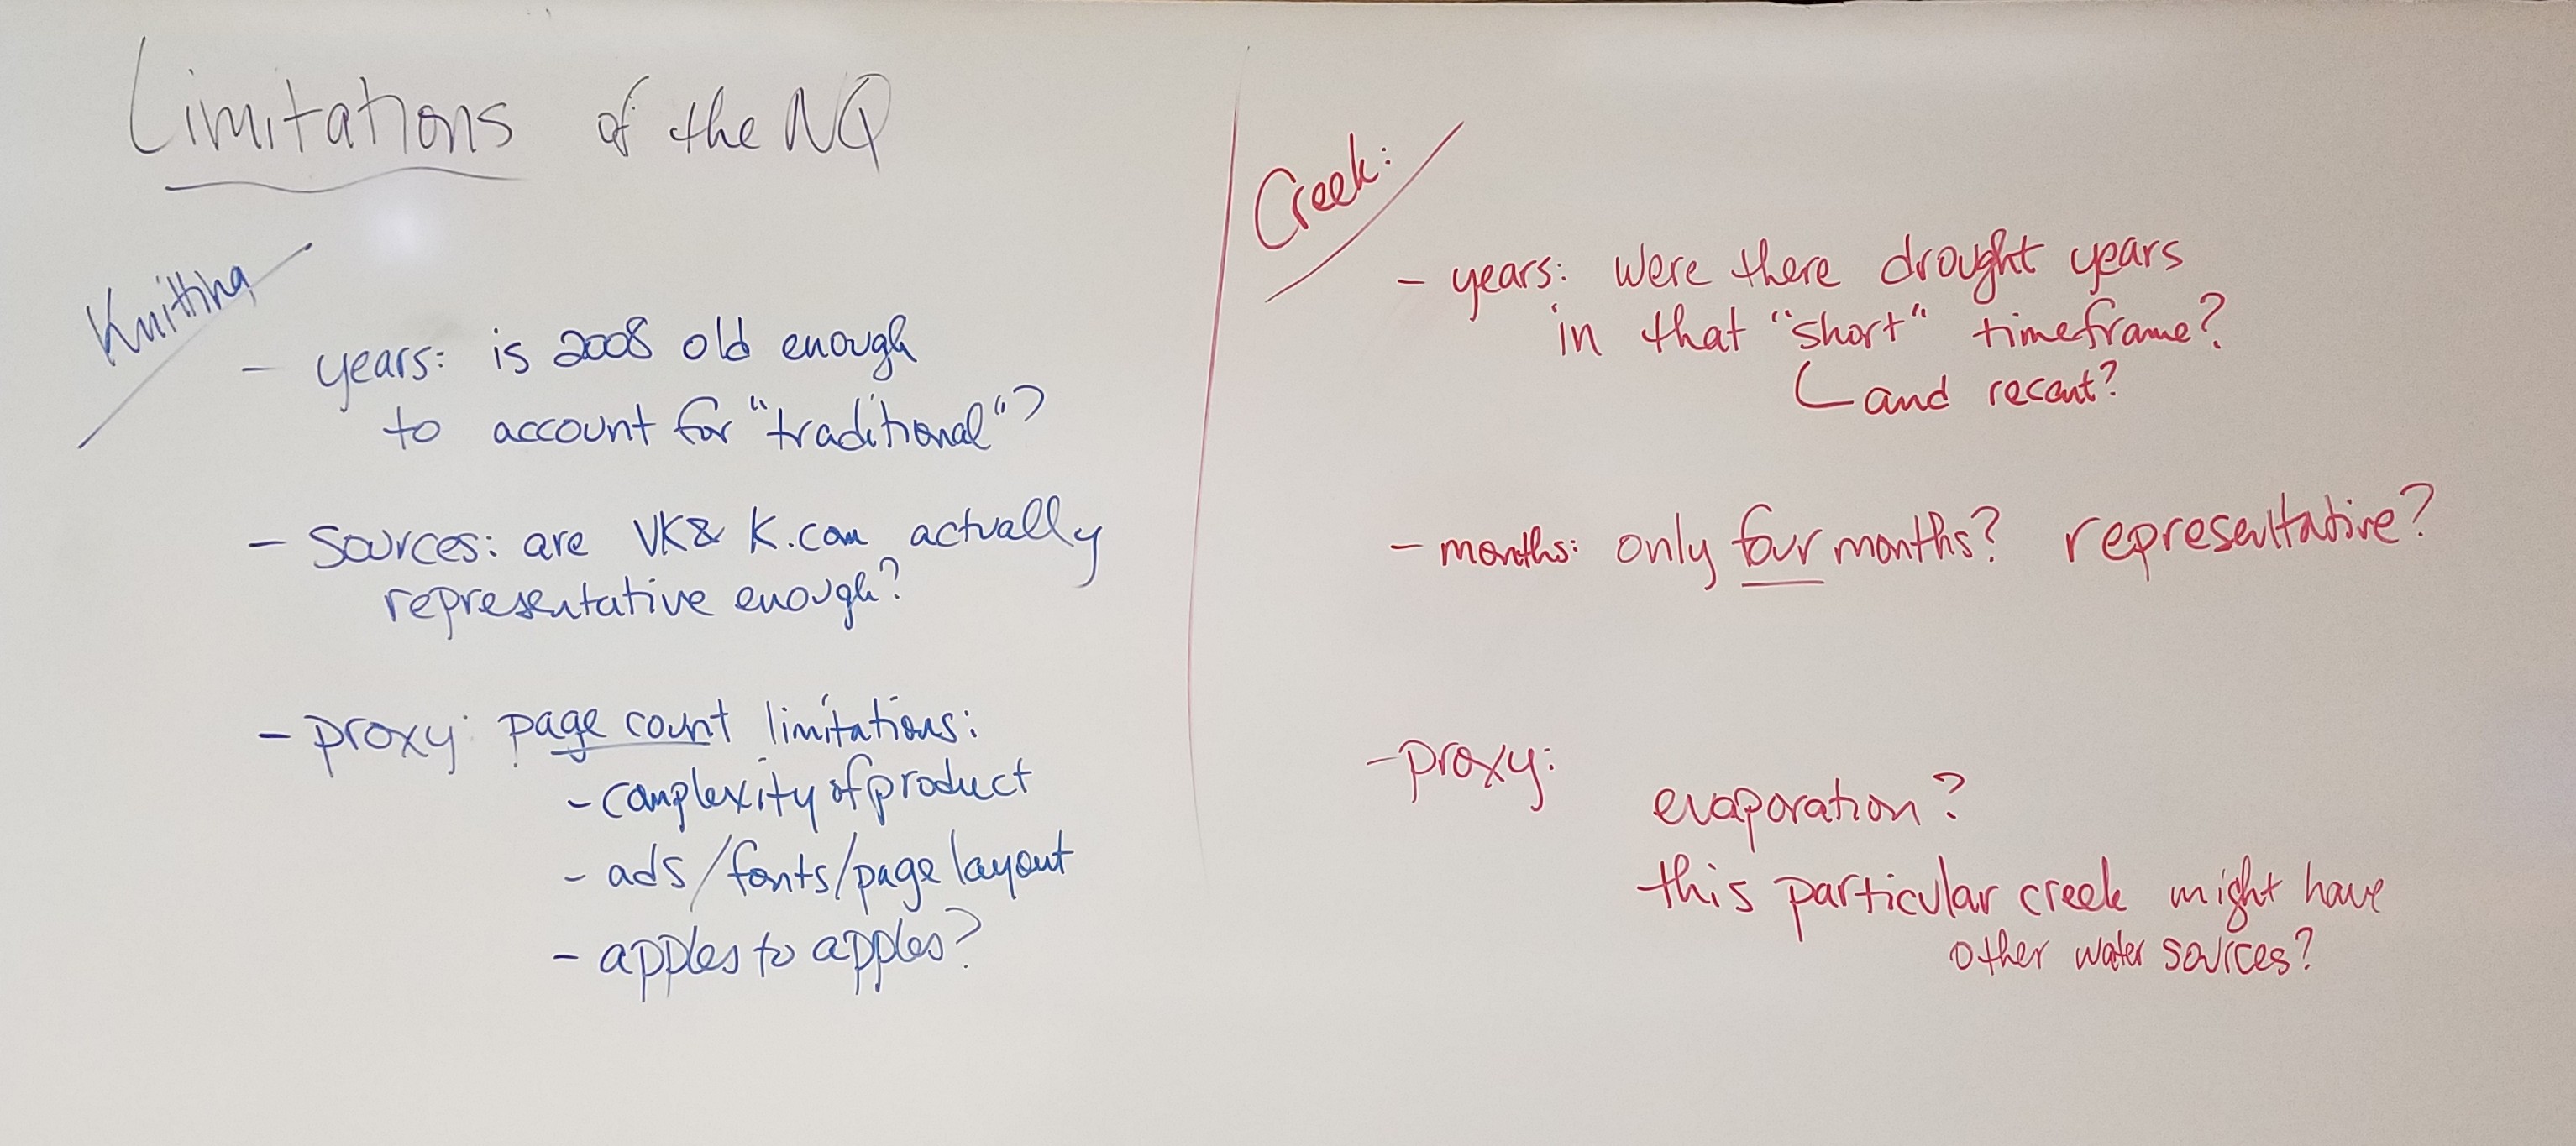 Limitations of the NQ
Knitting
- years: is 2008 old enough
to account for "traditional"?
- Sources: are VK & K.com actually
representative enough?
- proxy: page count limitations:
- complexity of product
- ads/fonts/page layout
- apples to apples?
Creek:
- years: were there drought years
in that "short" timeframe?
and recent?
- months: only four months? representative?
- proxy:
evaporation?
this particular creek might have
other water sources?